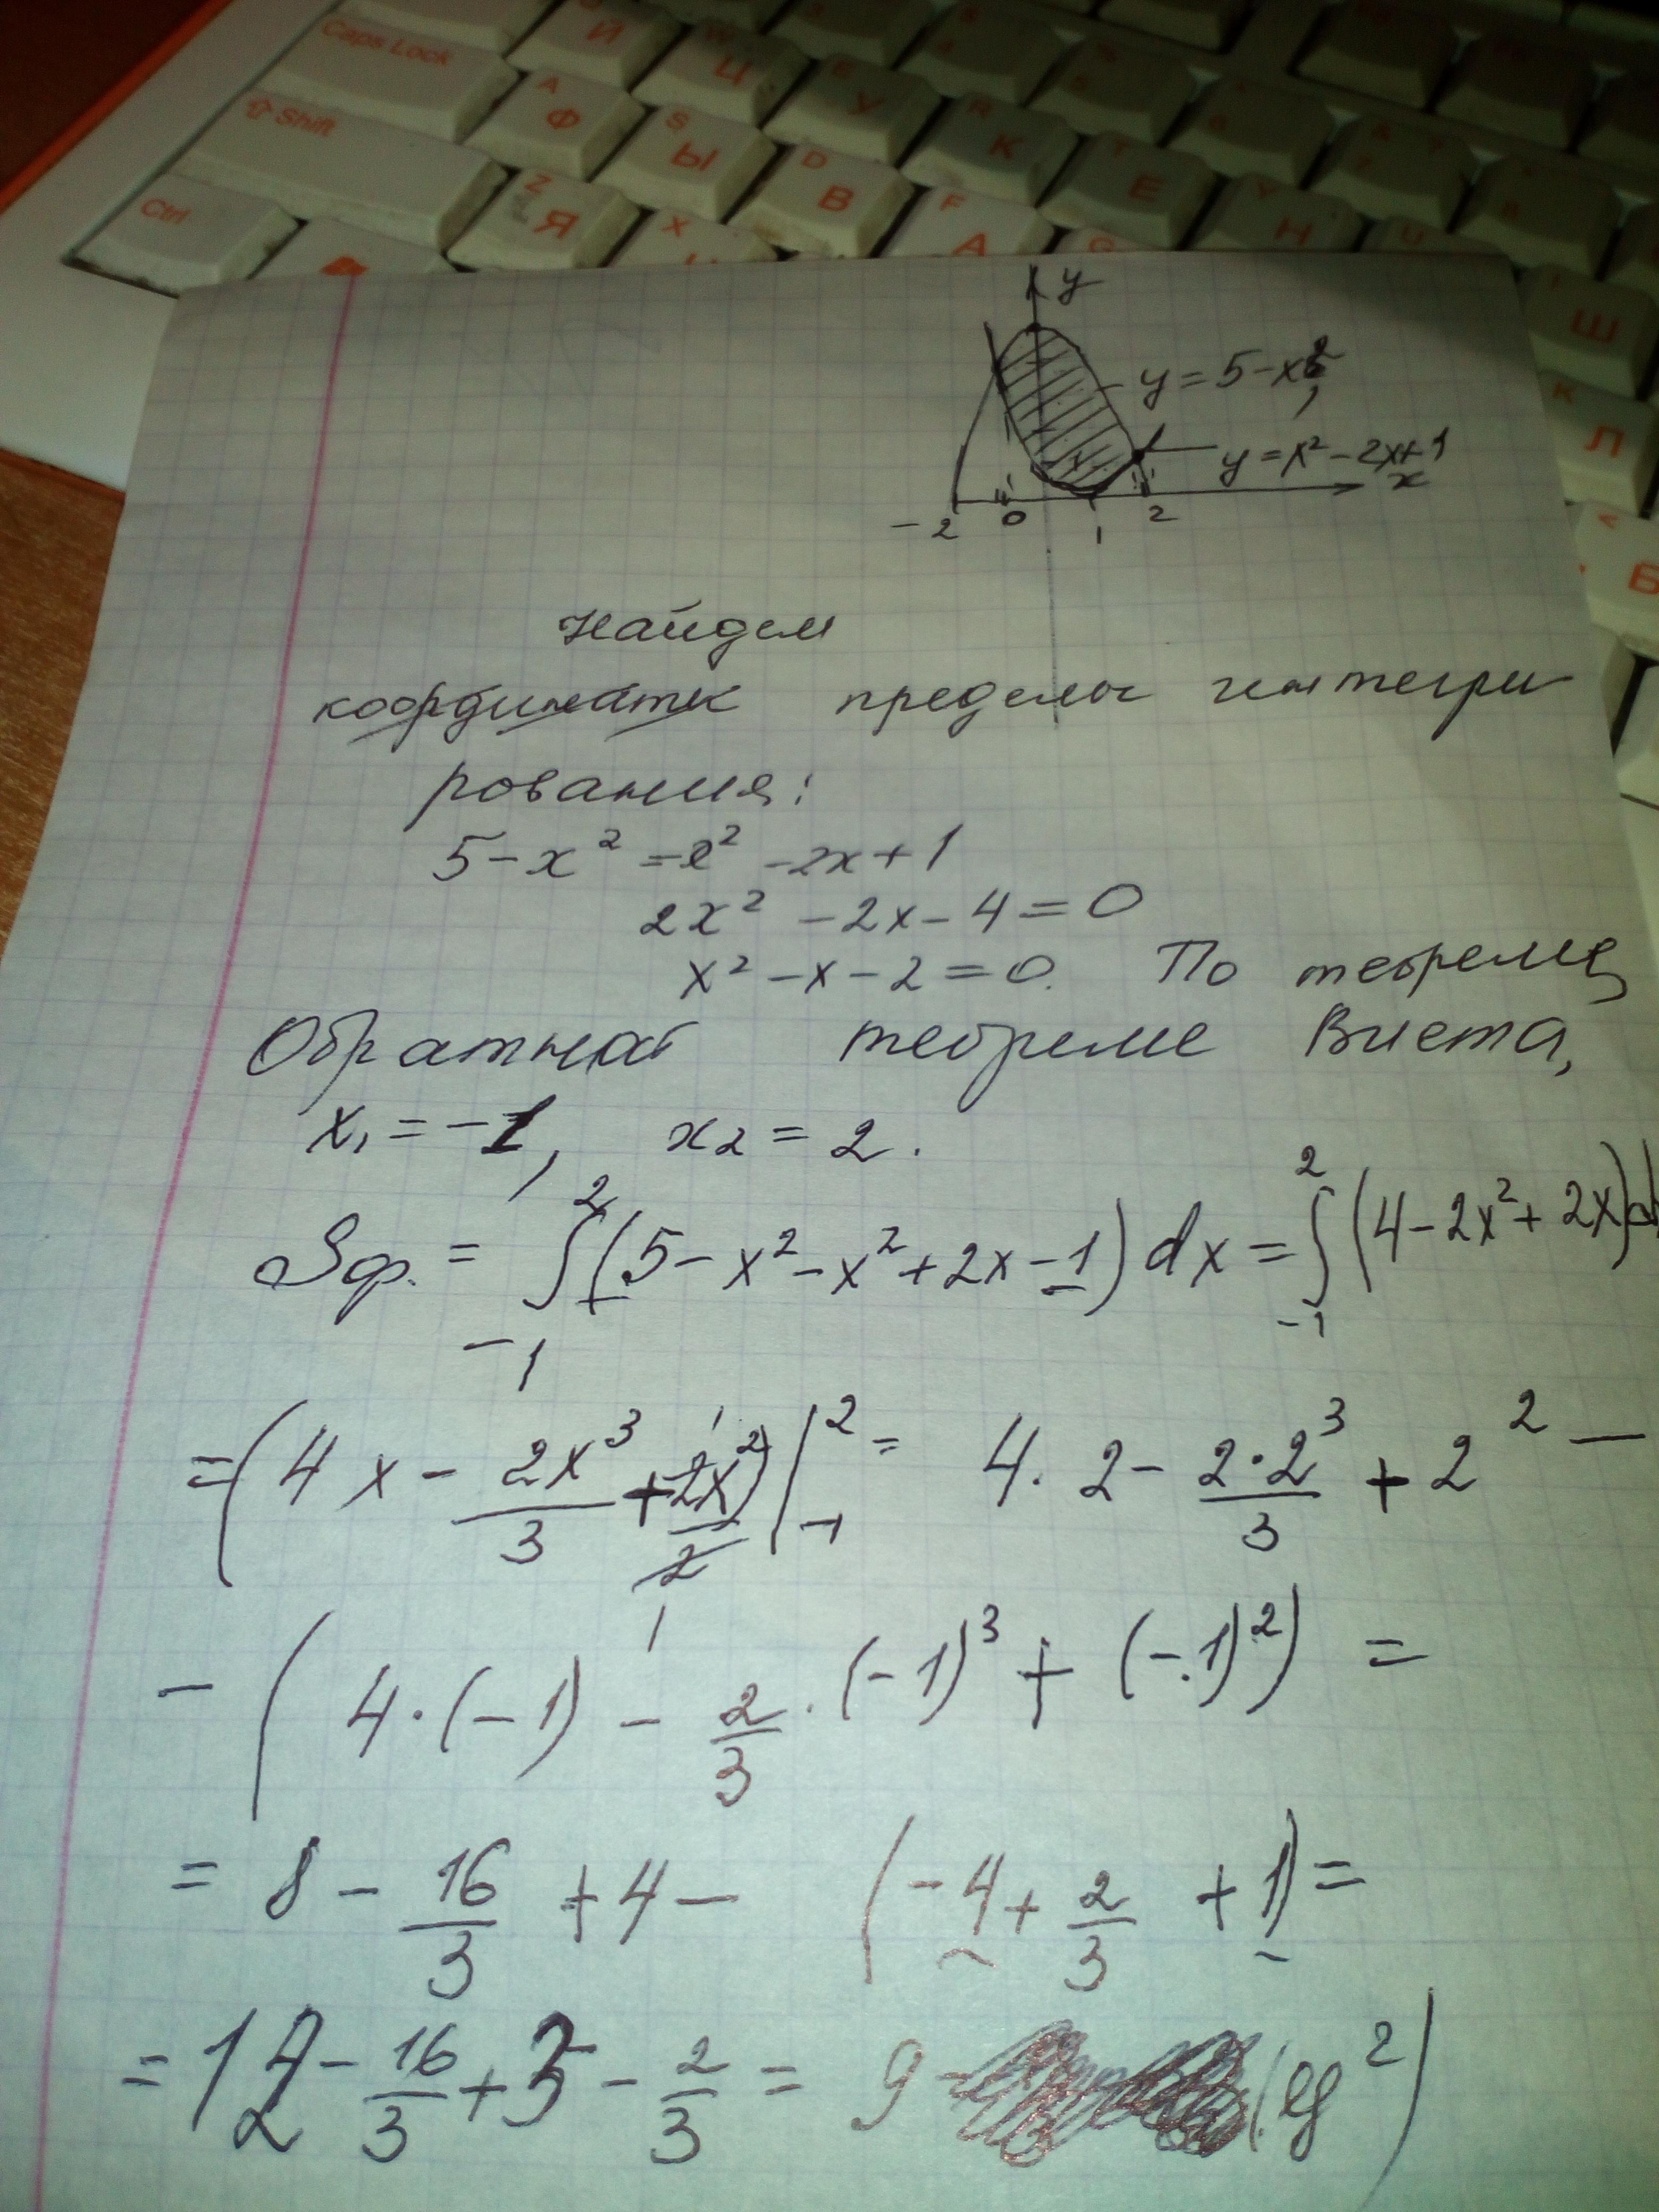 Caps Lock
Shift
Ctrl
Й
Ц
У
К
Е
Н
Ш
A Ф
S Ы
D В
F А
Z Я
X
К Л
< Б
y
y = 5 - x²,
y = x² - 2x + 1
x
-2 0 1 2
Найдем
координаты пределы интегри
рования:
5 - x² = x² - 2x + 1
2x² - 2x - 4 = 0
x² - x - 2 = 0. По теореме,
Обратной теореме Виета,
x₁ = -1, x₂ = 2.
Sф. = ∫₋₁² (5 - x² - x² + 2x - 1) dx = ∫₋₁² (4 - 2x² + 2x) d
= (4x - 2x³/3 + 2x²/2) |₋₁² = 4 · 2 - 2·2³/3 + 2² -
- (4 · (-1) - 2/3 · (-1)³ + (-1)²) =
= 8 - 16/3 + 4 - (-4 + 2/3 + 1) =
= 12 - 16/3 + 3 - 2/3 = 9 (ед²)